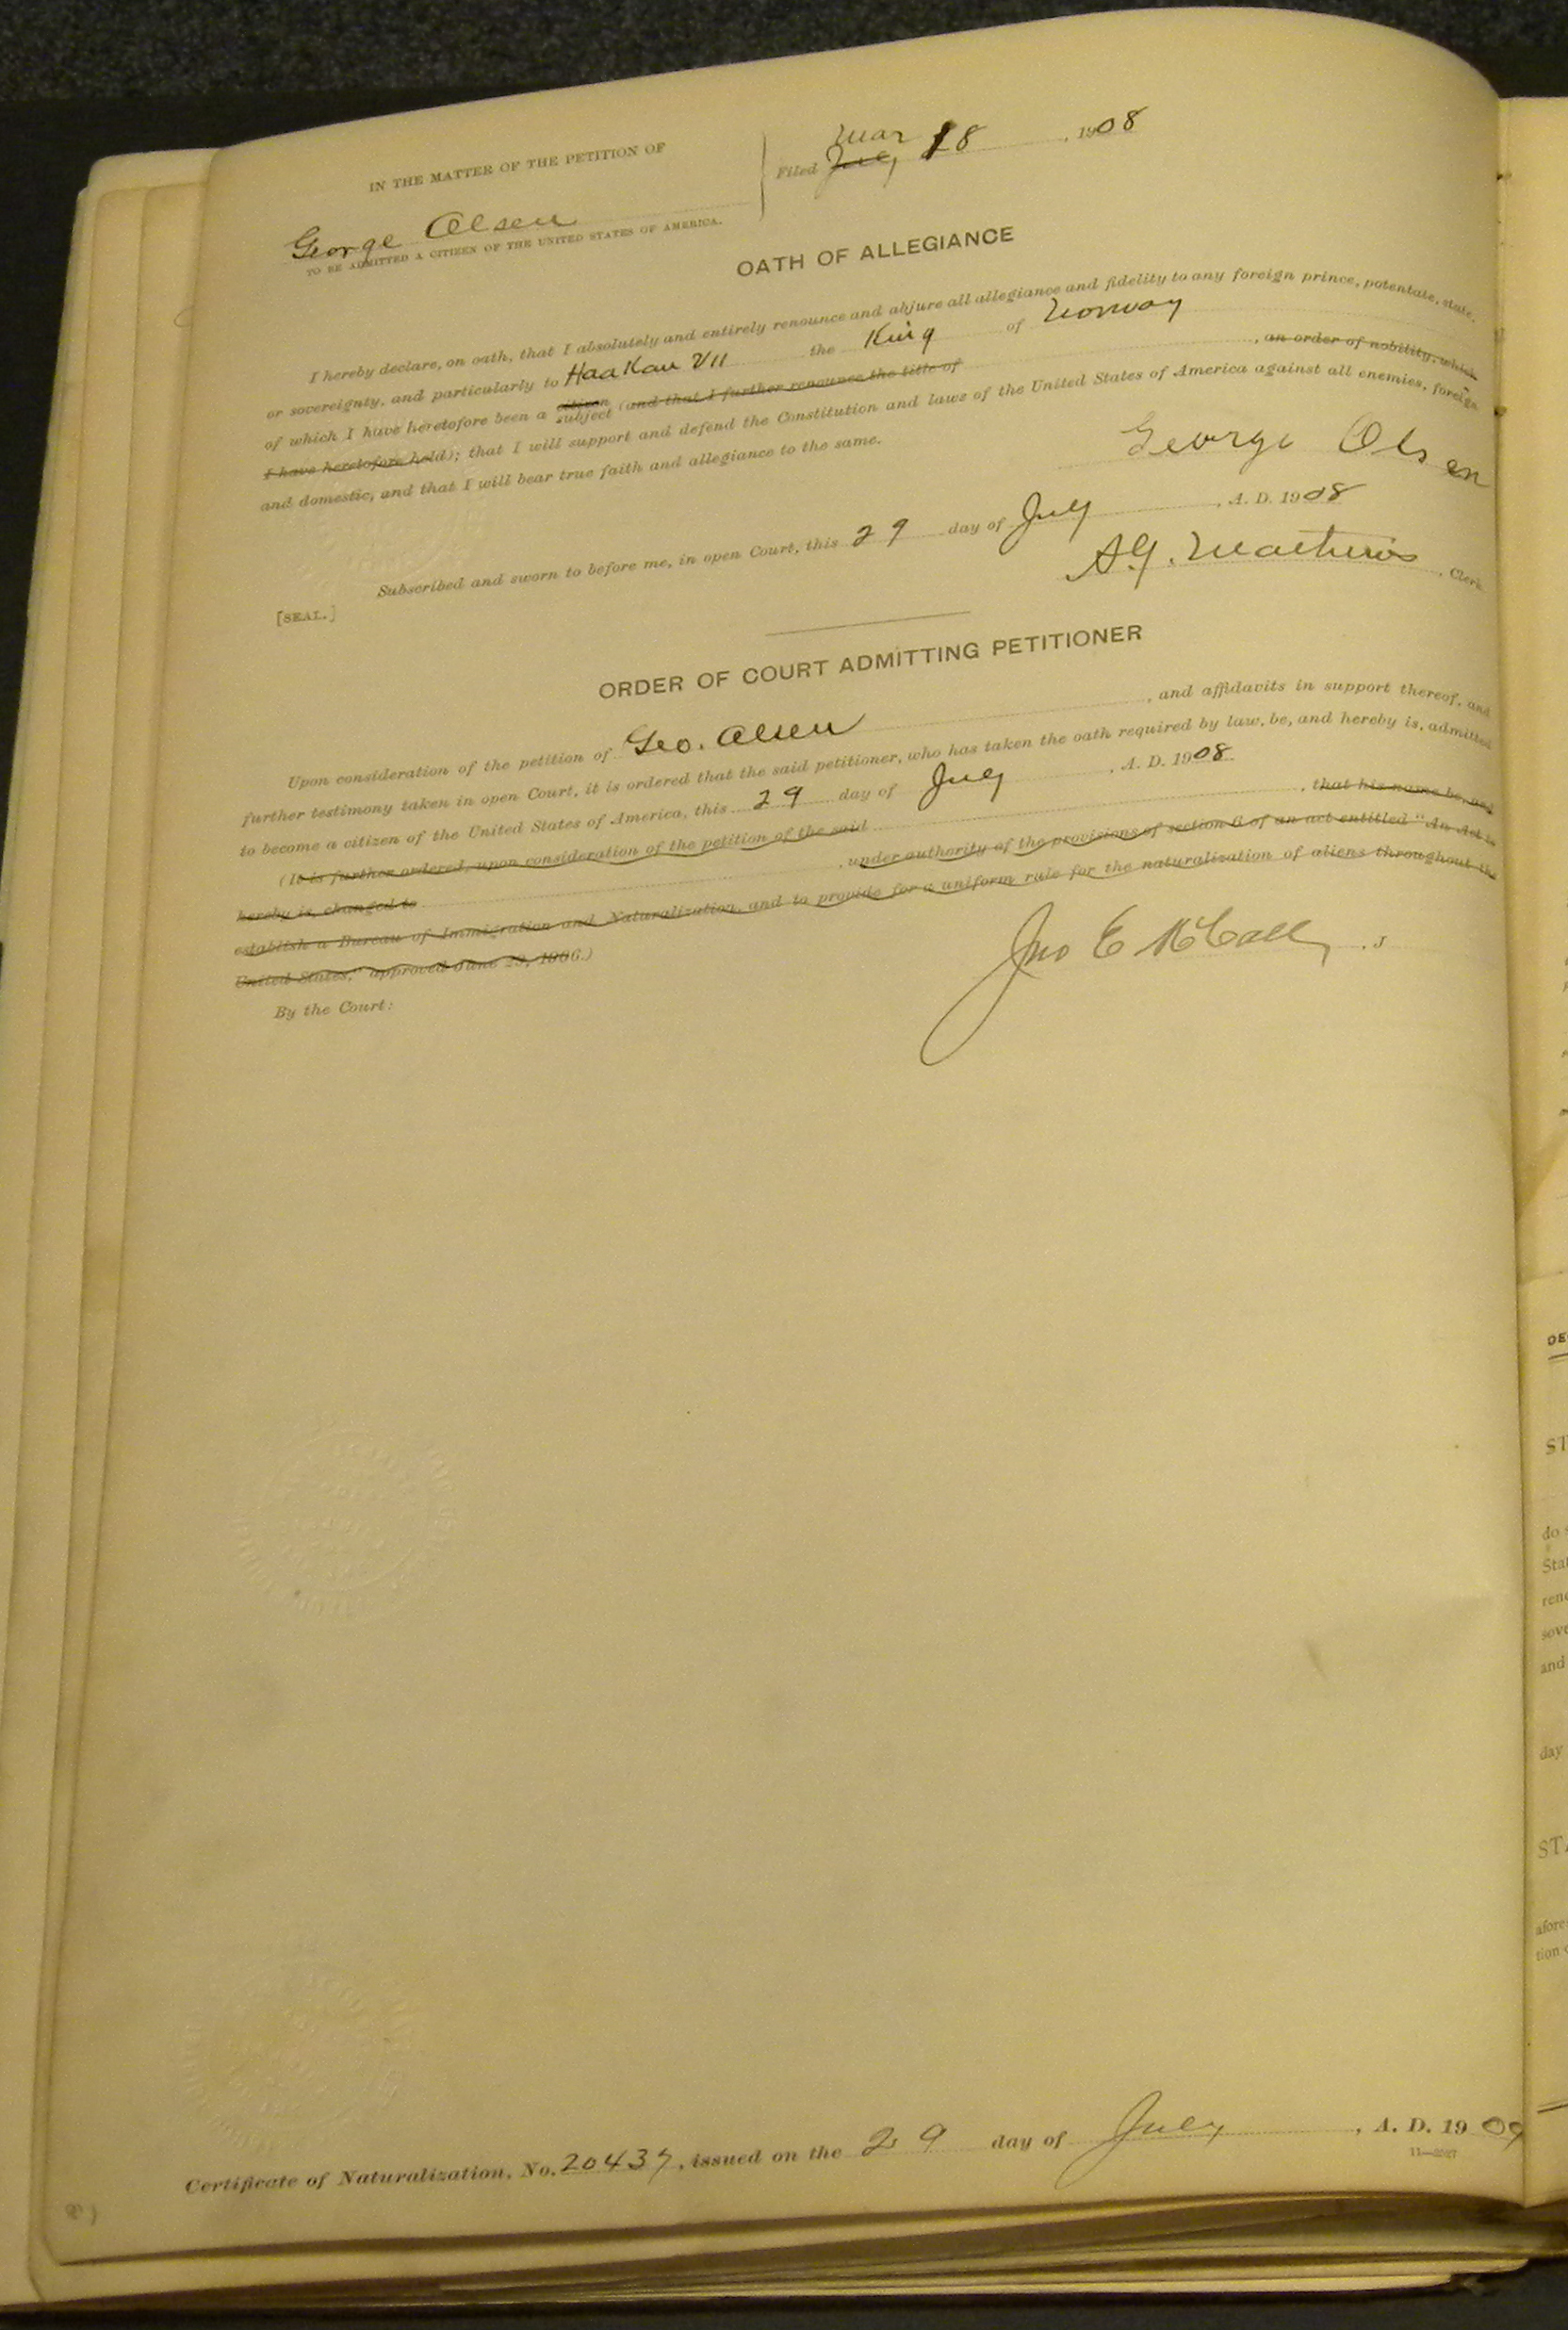 IN THE MATTER OF THE PETITION OF
George Olsen
TO BE ADMITTED A CITIZEN OF THE UNITED STATES OF AMERICA.
Filed July Mar 18, 1908
OATH OF ALLEGIANCE
I hereby declare, on oath, that I absolutely and entirely renounce and abjure all allegiance and fidelity to any foreign prince, potentate, state,
or sovereignty, and particularly to Haakon VII the King of Norway
of which I have heretofore been a citizen subject (and that I further renounce the title of , an order of nobility, which
I have heretofore held); that I will support and defend the Constitution and laws of the United States of America against all enemies, foreign
and domestic, and that I will bear true faith and allegiance to the same.
George Olsen
Subscribed and sworn to before me, in open Court, this 29 day of July, A. D. 1908
[SEAL.]
A.G. Mathews, Clerk
ORDER OF COURT ADMITTING PETITIONER
Upon consideration of the petition of Geo. Olsen, and affidavits in support thereof, and
further testimony taken in open Court, it is ordered that the said petitioner, who has taken the oath required by law, be, and hereby is, admitted
to become a citizen of the United States of America, this 29 day of July, A. D. 1908
(It is further ordered, upon consideration of the petition of the said , that his name be, and
hereby is, changed to , under authority of the provisions of section 6 of an act entitled "An Act to
establish a Bureau of Immigration and Naturalization, and to provide for a uniform rule for the naturalization of aliens throughout the
United States," approved June 29, 1906.)
By the Court:
Jno E McCall, J
Certificate of Naturalization, No. 20437, issued on the 29 day of July, A. D. 1909
11—2527